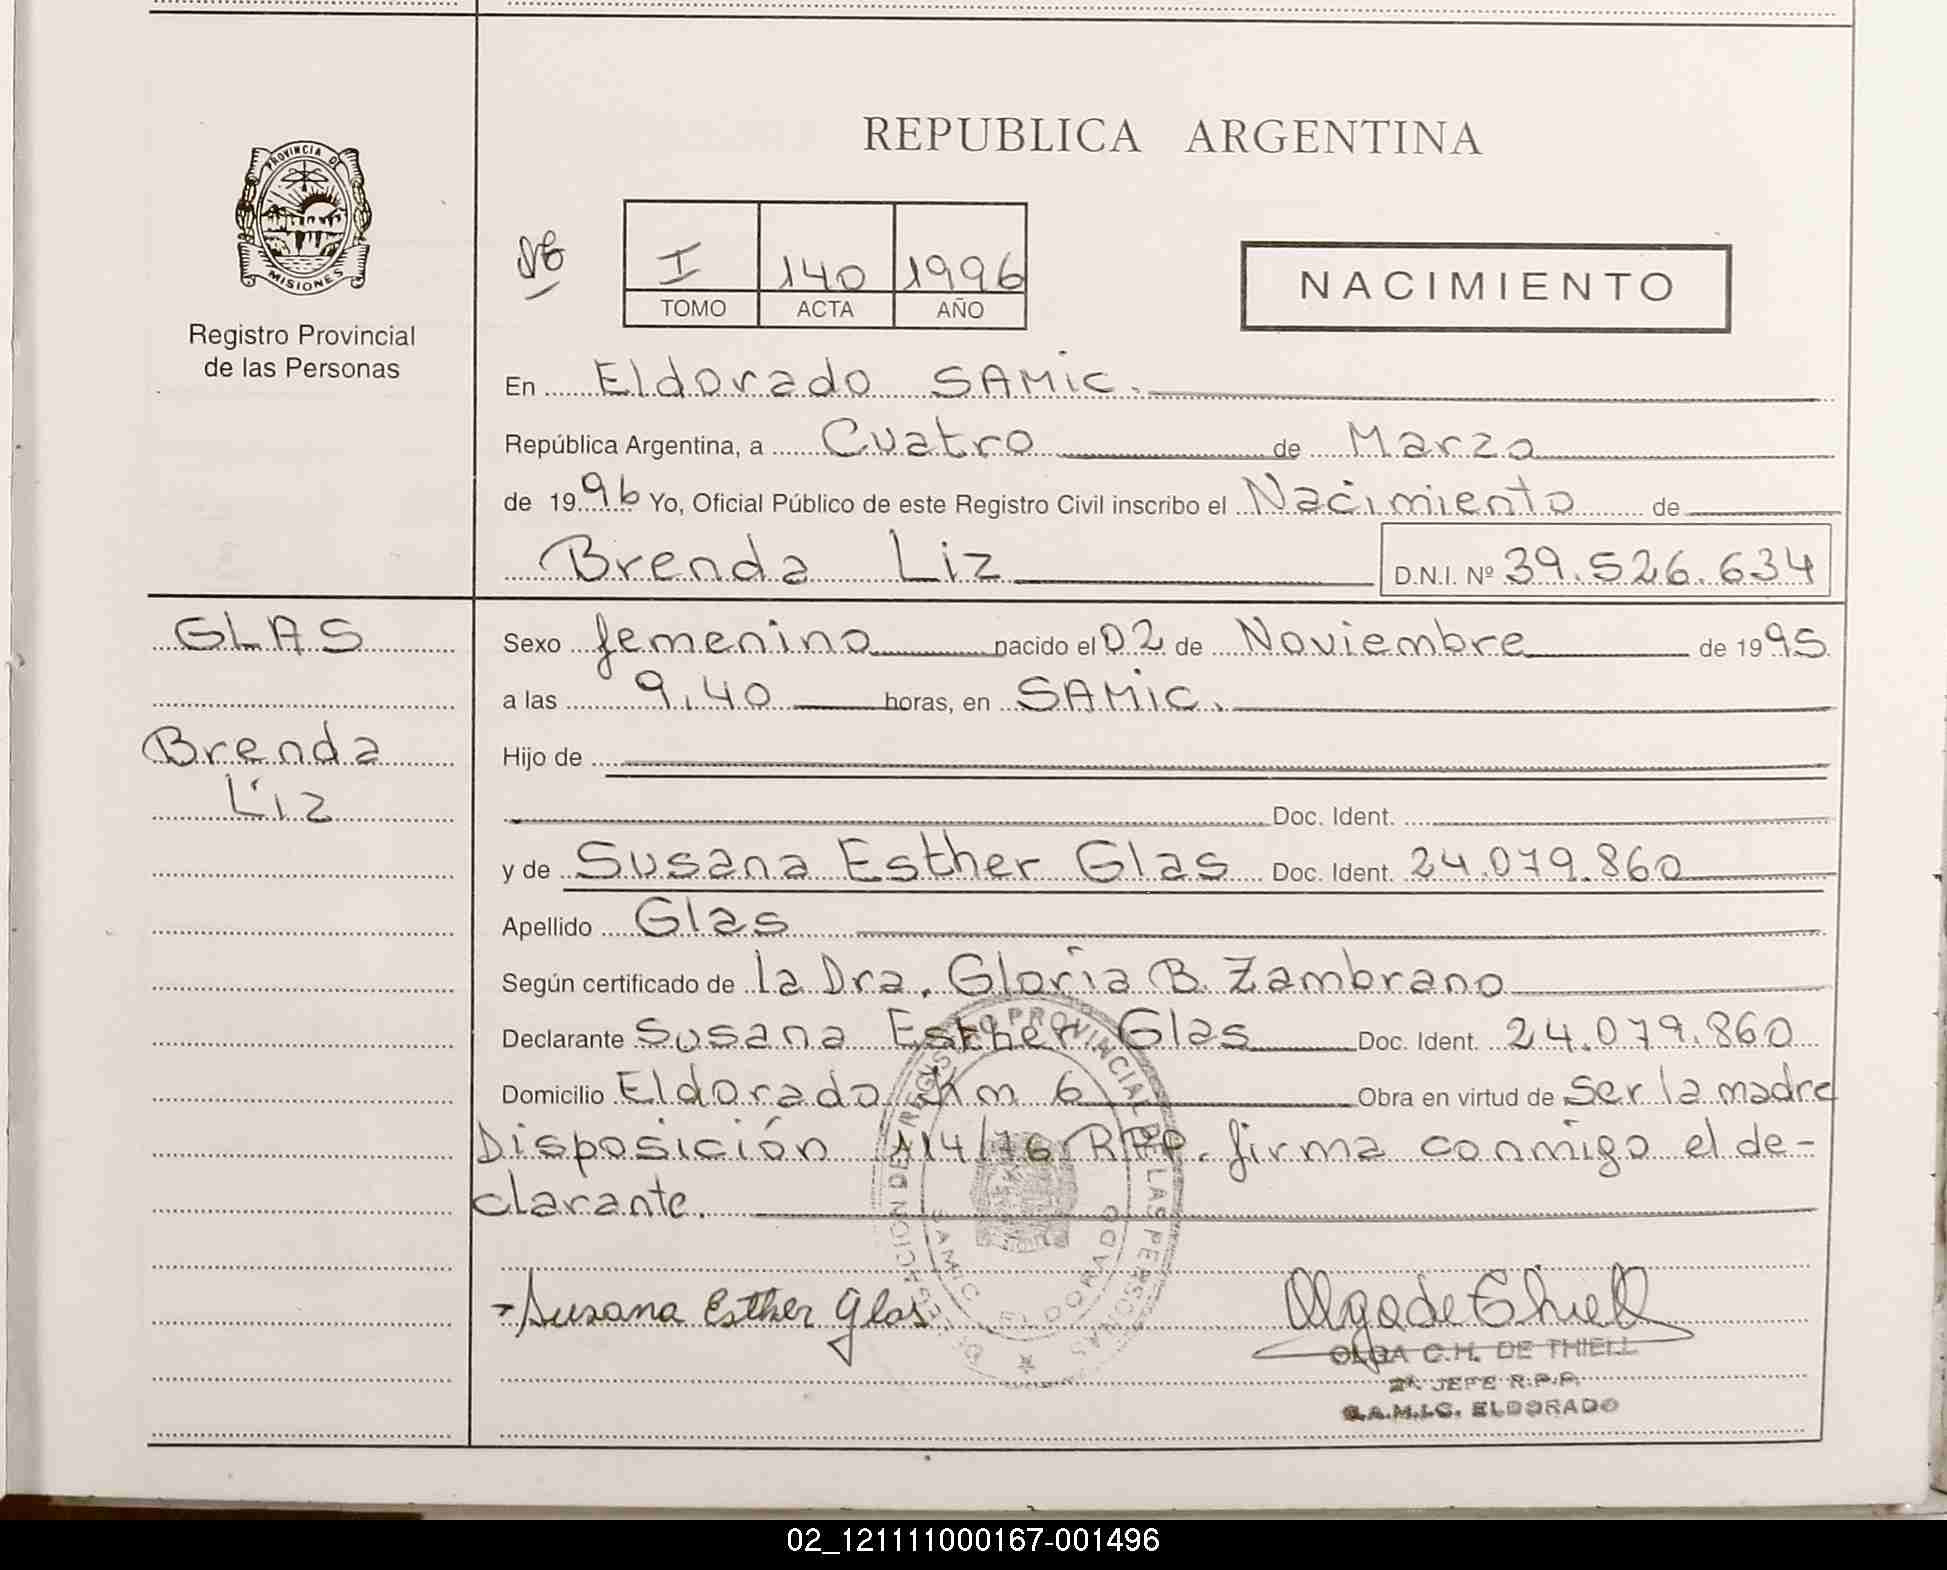 REPUBLICA ARGENTINA
PROVINCIA DE
MISIONES
Registro Provincial
de las Personas
I 140 1996
TOMO ACTA AÑO
NACIMIENTO
En Eldorado SAMIC.
República Argentina, a Cuatro de Marzo
de 1996 Yo, Oficial Público de este Registro Civil inscribo el Nacimiento de
Brenda Liz D.N.I. Nº 39.526.634
GLAS
Brenda
Liz
Sexo femenino nacido el 02 de Noviembre de 1995
a las 9.40 horas, en SAMIC.
Hijo de
Doc. Ident.
y de Susana Esther Glas Doc. Ident. 24.079.860
Apellido Glas
Según certificado de la Dra. Gloria B. Zambrano
Declarante Susana Esther Glas Doc. Ident. 24.079.860
Domicilio Eldorado Km 6 Obra en virtud de ser la madre
Disposición 114/76 RPP. firma conmigo el de-
clarante.
Susana Esther Glas
Olga de Thiell
OLGA C.H. DE THIELL
2ª JEFE R.P.P.
S.A.M.I.C. ELDORADO
PROVINCIAL DE LAS PERSONAS
SAMIC ELDORADO
02_121111000167-001496